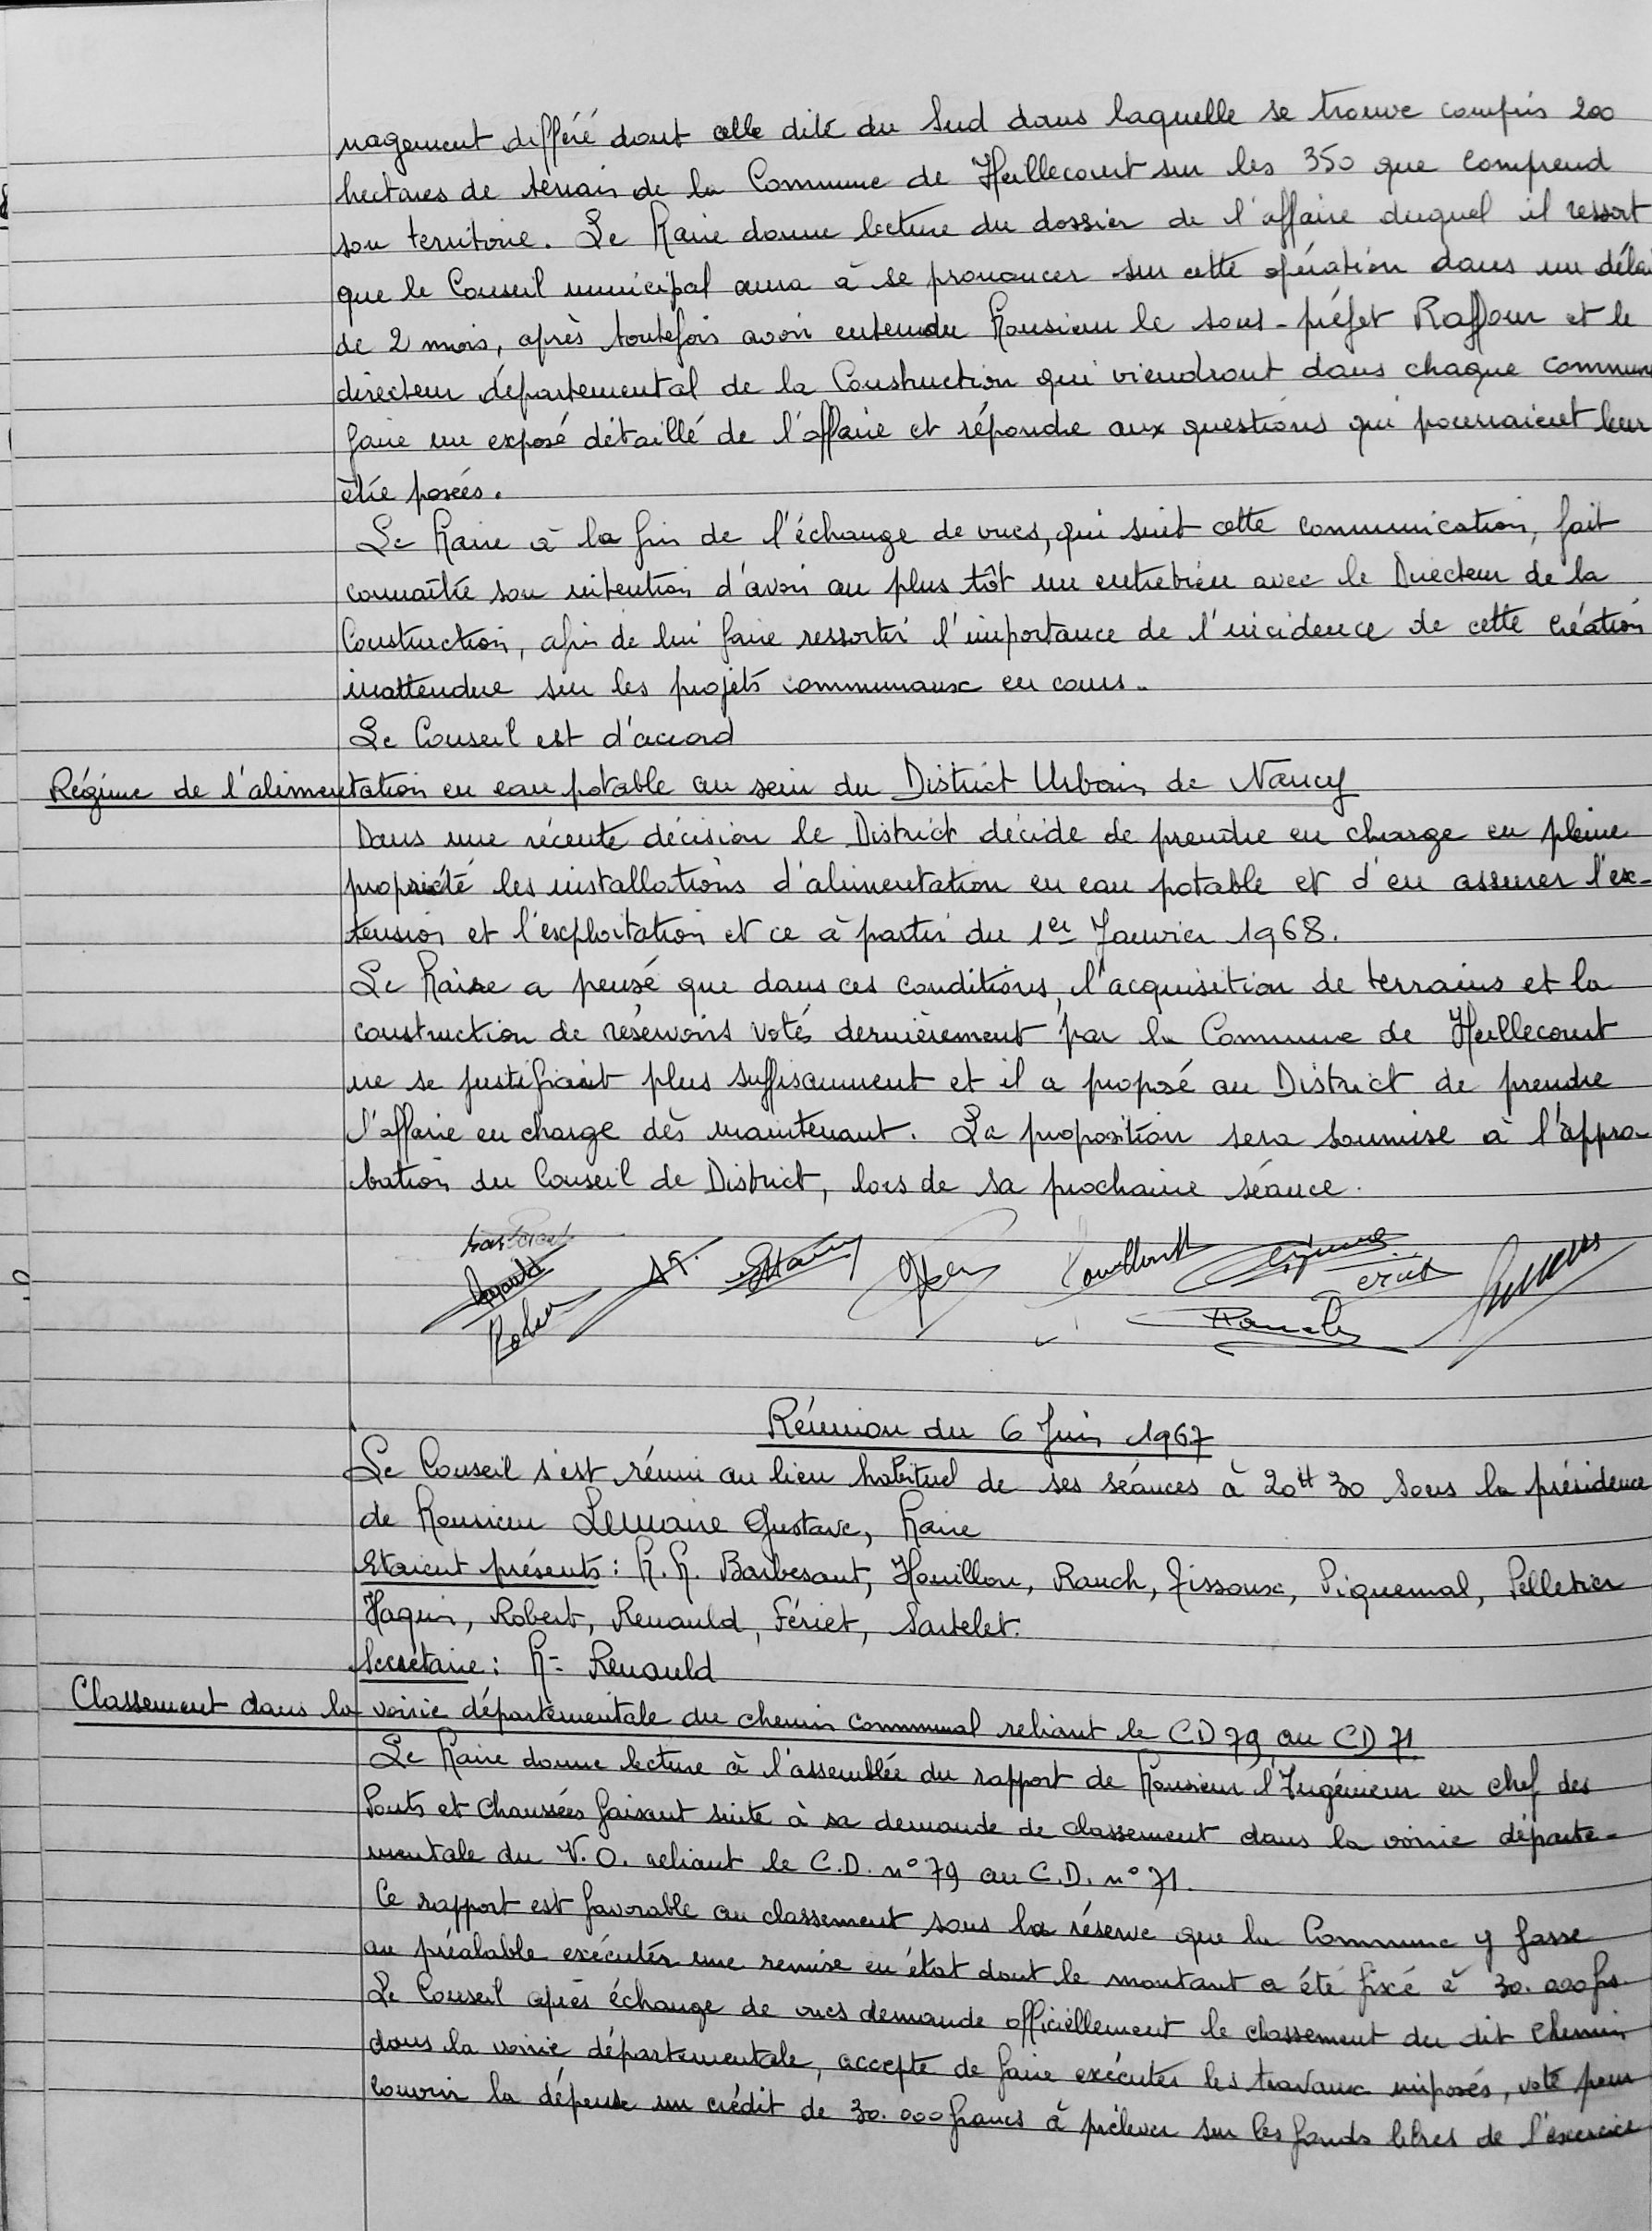 nagement différé dont celle dite du Sud dans laquelle se trouve compris 200
hectares de terrain de la Commune de Heillecourt sur les 350 que comprend
son territoire. Le Maire donne lecture du dossier de l'affaire duquel il ressort
que le Conseil municipal aura à se prononcer sur cette opération dans un délai
de 2 mois, après toutefois avoir entendu Monsieur le sous-préfet Raffour et le
directeur départemental de la Construction qui viendront dans chaque commune
faire un exposé détaillé de l'affaire et répondre aux questions qui pourraient leur
être posées.
Le Maire à la fin de l'échange de vues, qui suit cette communication, fait
connaître son intention d'avoir au plus tôt un entretien avec le Directeur de la
Construction, afin de lui faire ressortir l'importance de l'incidence de cette création
inattendue sur les projets communaux en cours.
Le Conseil est d'accord
Régime de l'alimentation en eau potable au sein du District Urbain de Nancy
Dans une récente décision le District décide de prendre en charge en pleine
propriété les installations d'alimentation en eau potable et d'en assurer l'ex-
tension et l'exploitation et ce à partir du 1er Janvier 1968.
Le Maire a pensé que dans ces conditions, l'acquisition de terrains et la
construction de réservoirs votés dernièrement par la Commune de Heillecourt
ne se justifiait plus suffisamment et il a proposé au District de prendre
l'affaire en charge dès maintenant. La proposition sera soumise à l'appro-
bation du Conseil de District, lors de sa prochaine séance.
Réunion du 6 Juin 1967
Le Conseil s'est réuni au lieu habituel de ses séances à 20H 30 sous la présidence
de Monsieur Lemaire Gustave, Maire
Etaient présents : M.M. Barbesant, Houillon, Rauch, Tissoux, Piquemal, Pelletier
Haquin, Robert, Renauld, Fériet, Sartelet.
Secrétaire : Mr Renauld
Classement dans la voirie départementale du chemin communal reliant le CD 79 au CD 71
Le Maire donne lecture à l'assemblée du rapport de Monsieur l'Ingénieur en chef des
Ponts et Chaussées faisant suite à sa demande de classement dans la voirie départe-
mentale du V.O. reliant le C.D. n° 79 au C.D. n° 71.
Ce rapport est favorable au classement sous la réserve que la Commune y fasse
au préalable exécuter une remise en état dont le montant a été fixé à 30.000 frs.
Le Conseil après échange de vues demande officiellement le classement du dit chemin
dans la voirie départementale, accepte de faire exécuter les travaux imposés, vote pour
couvrir la dépense un crédit de 30.000 francs à prélever sur les fonds libres de l'exercice